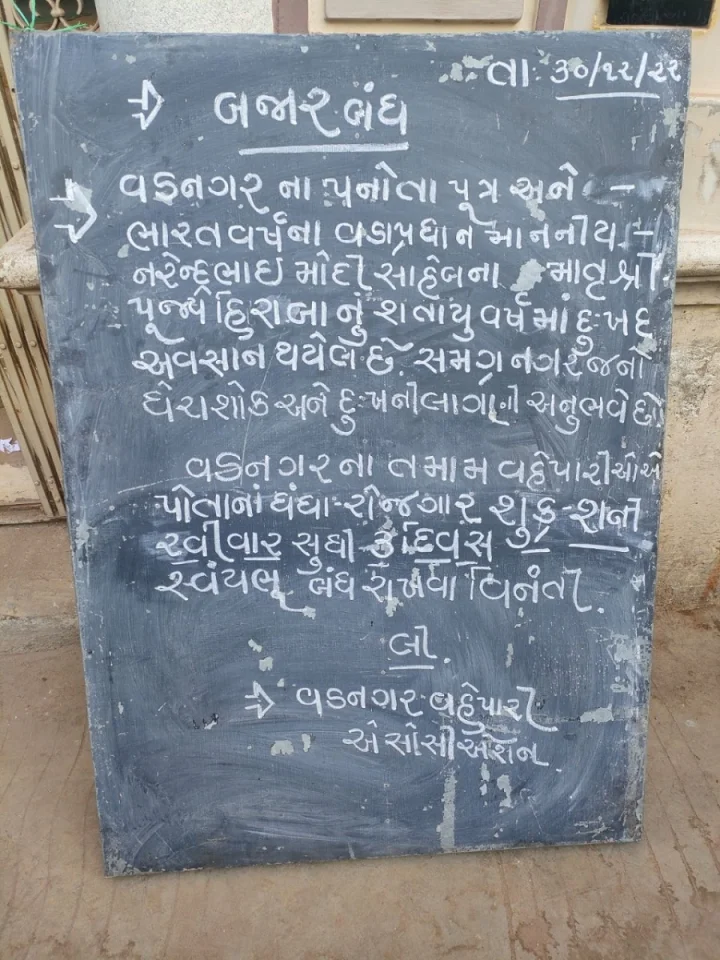 તા ૩૦/૧૨/૨૨
બજાર બંધ
વડનગર ના પનોતા પૂત્ર અને -
ભારતવર્ષના વડાપ્રધાન માનનીય -
નરેન્દ્રભાઇ મોદી સાહેબના માતૃશ્રી
પૂજ્ય હિરાબા નું શતાયુ વર્ષ માં દુઃખદ
અવસાન થયેલ છે. સમગ્ર નગરજનો
ઘેરાશોક અને દુઃખની લાગણી અનુભવે છે
વડનગરના તમામ વહેપારીઓએ
પોતાનાં ધંધા-રોજગાર શુક્ર-શની
રવીવાર સુધી ૩ દિવસ
સ્વંયભૂ બંધ રાખવા વિનંતી.
લી.
વડનગર વહેપારી
એસોસીએશન